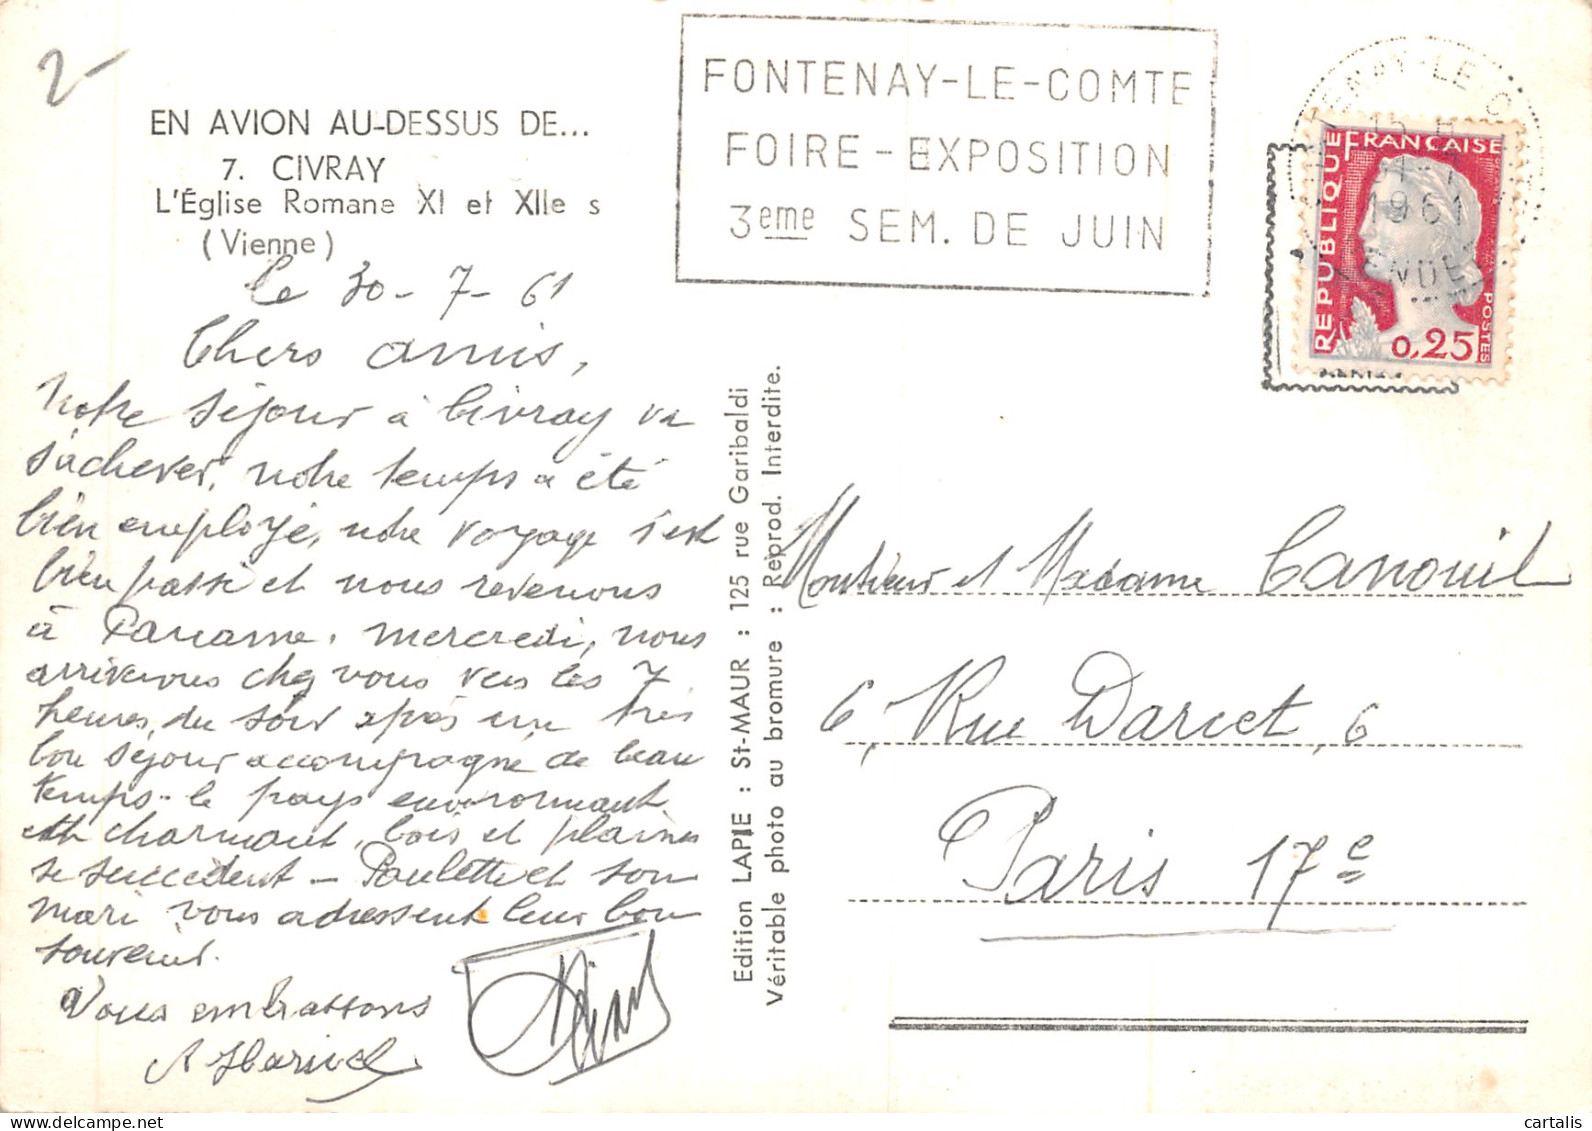 2
EN AVION AU-DESSUS DE...
7. CIVRAY
L'Église Romane XI et XIIe s
(Vienne)
FONTENAY-LE-COMTE
FOIRE-EXPOSITION
3eme SEM. DE JUIN
15 H
1961
VENDEE
REPUBLIQUE FRANCAISE
POSTES
0,25
le 30-7-61
Chers amis,
Notre séjour à Civray va
s'achever, notre temps a été
bien employé, notre voyage s'est
bien passé et nous revenons
à mercredi, nous
arriverons chez vous vers les 7
heures du soir après un très
bon séjour accompagné de beau
temps - le pays environnant
est charmant, bois et plaines
se succèdent - Paulette et son
mari vous adressent leur bon
souvenir.
Vous embrassons
Edition LAPIE : St-MAUR : 125 rue Garibaldi
Véritable photo au bromure : Reprod. Interdite.
Monsieur et Madame Canouil
6, Rue Darcet, 6
Paris 17e
cartalis